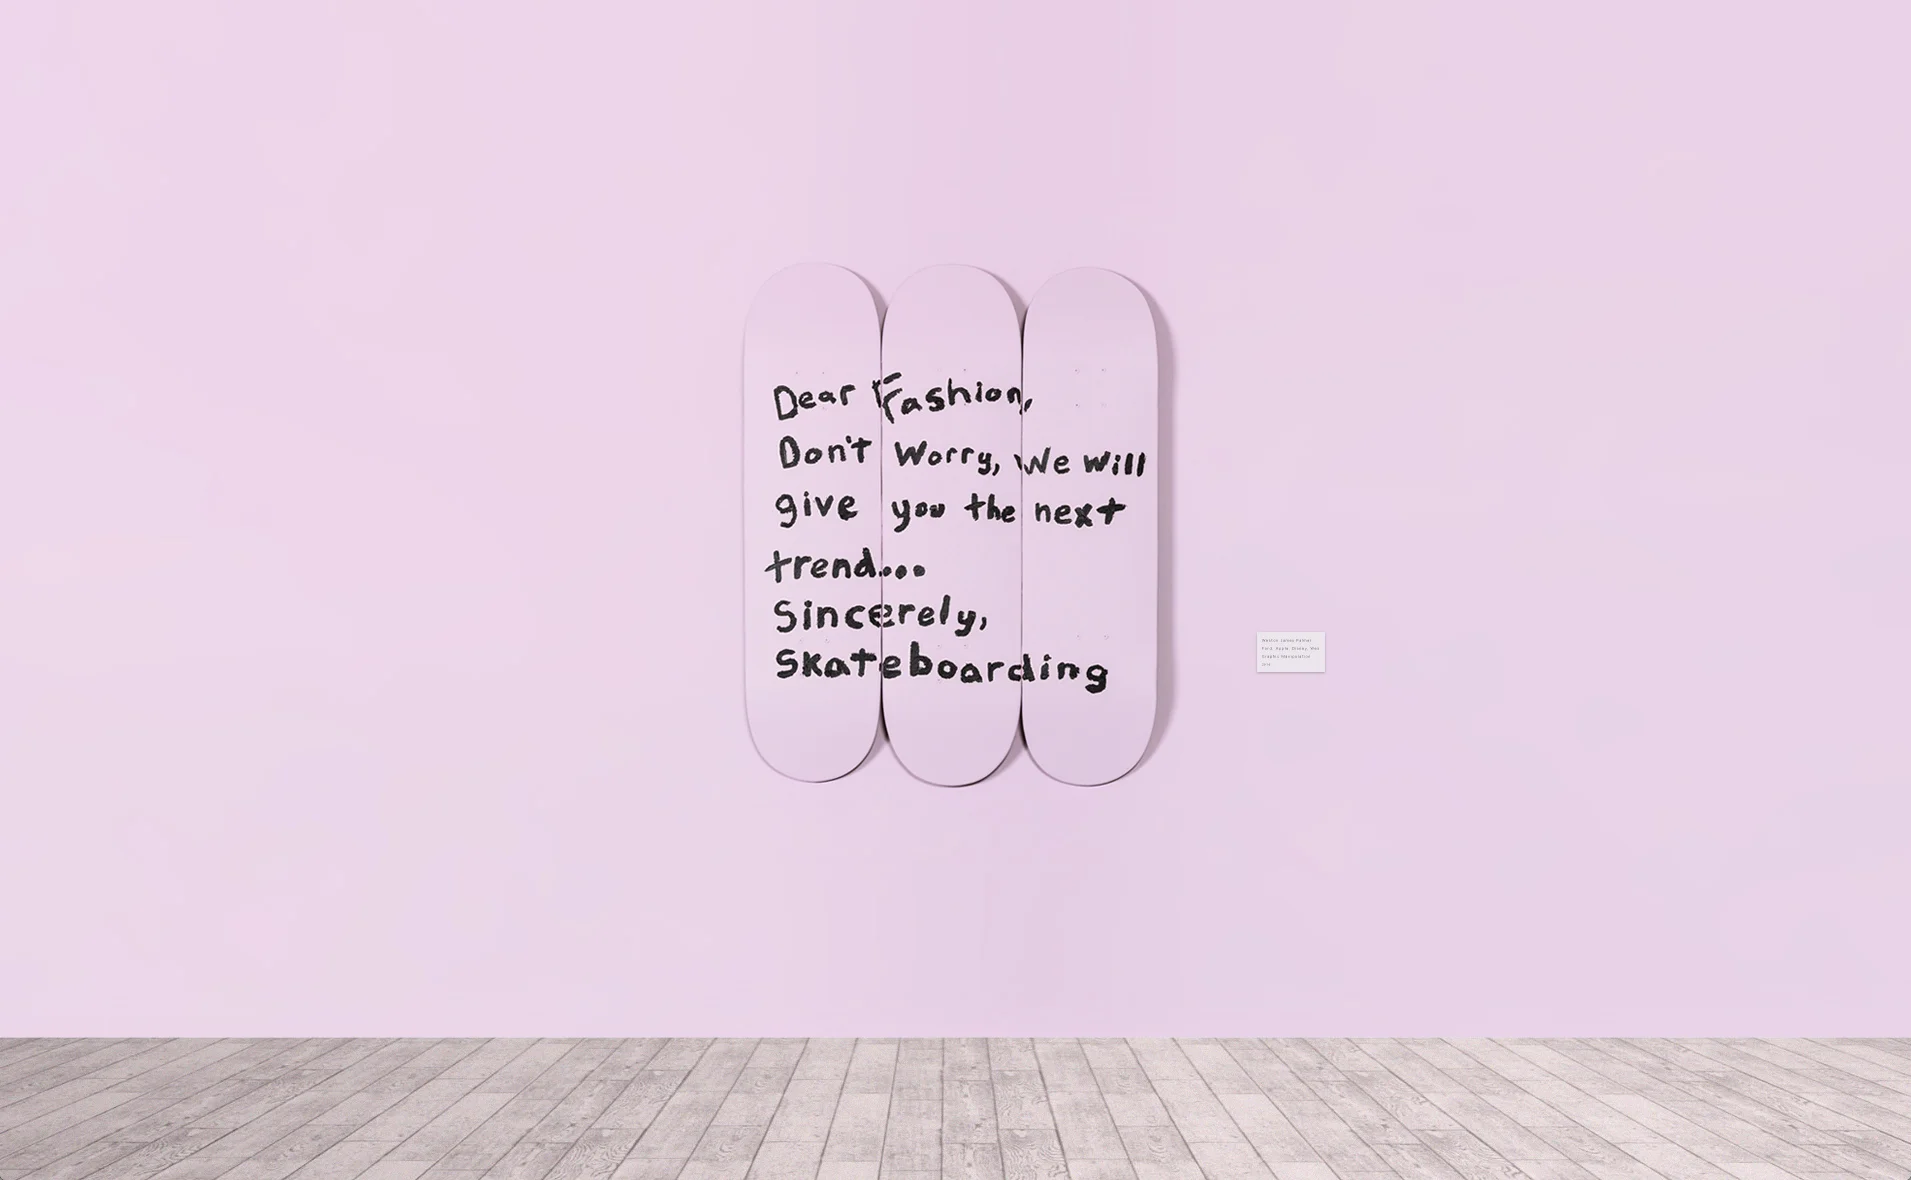 Dear Fashion,
Don't Worry, We Will
give you the next
trend...
Sincerely,
Skateboarding
Graphic Manipulation